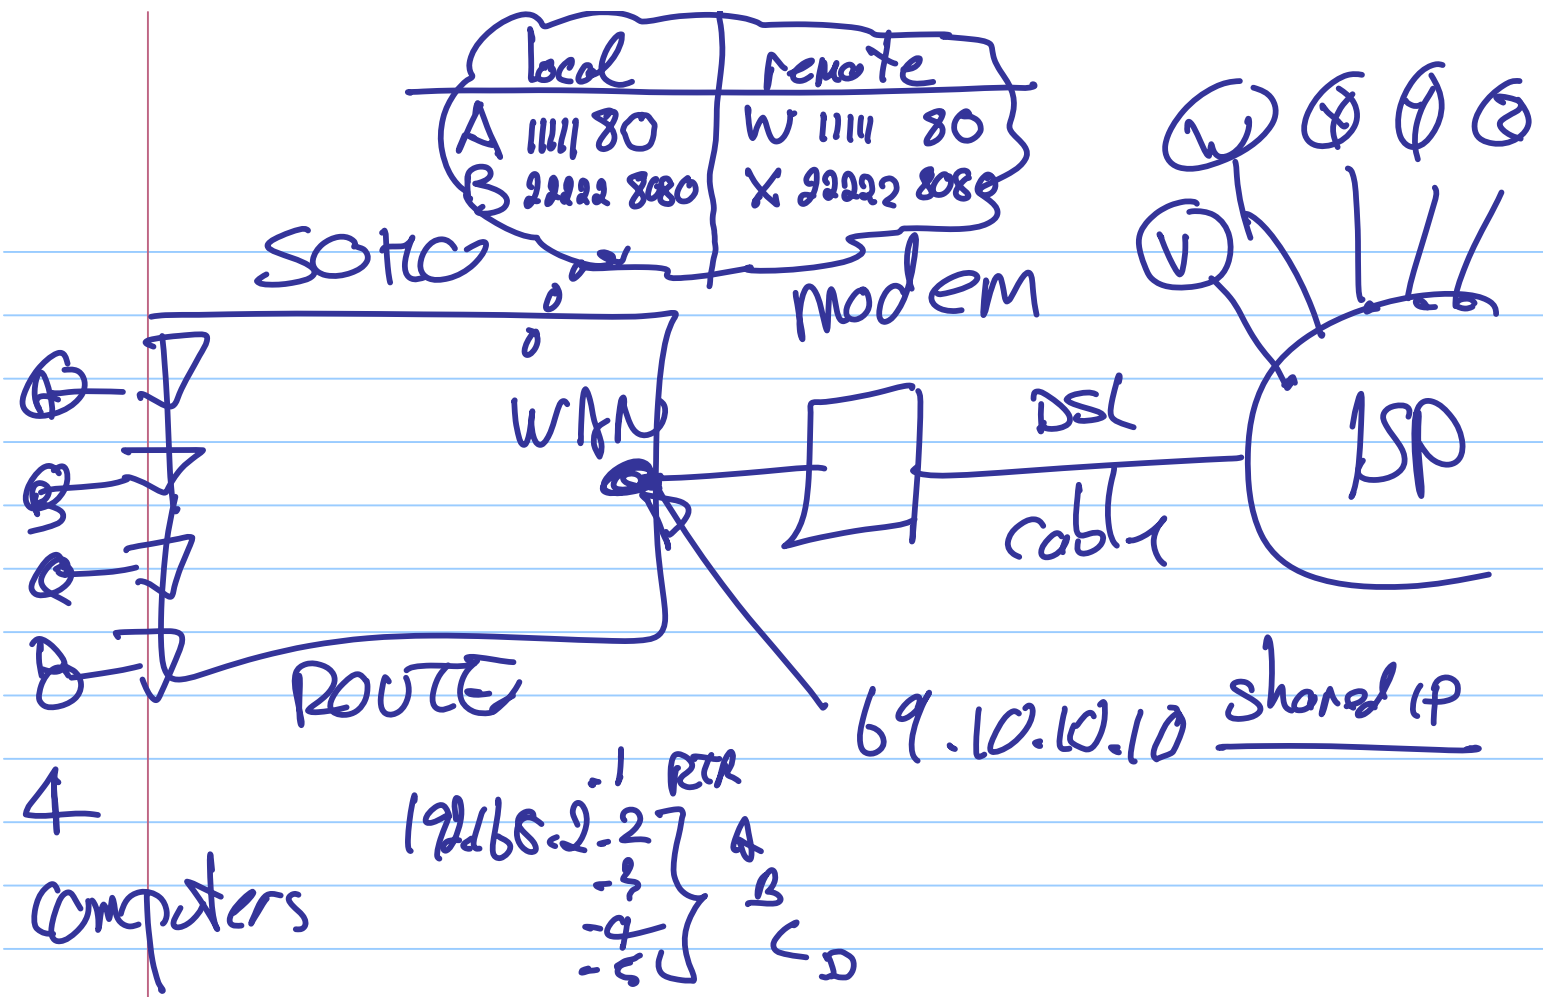 local remote
A 11111 80 W 11111 80
B 22222 8080 X 22222 8080
SOHO
modem
W X Y Z
V
A
B
C
D
WAN
DSL
cable
ISP
ROUTE
69.10.10.10 shared IP
.1 RTR
192.168.2.2 A
.3 B
.4 C
.5 D
4
computers